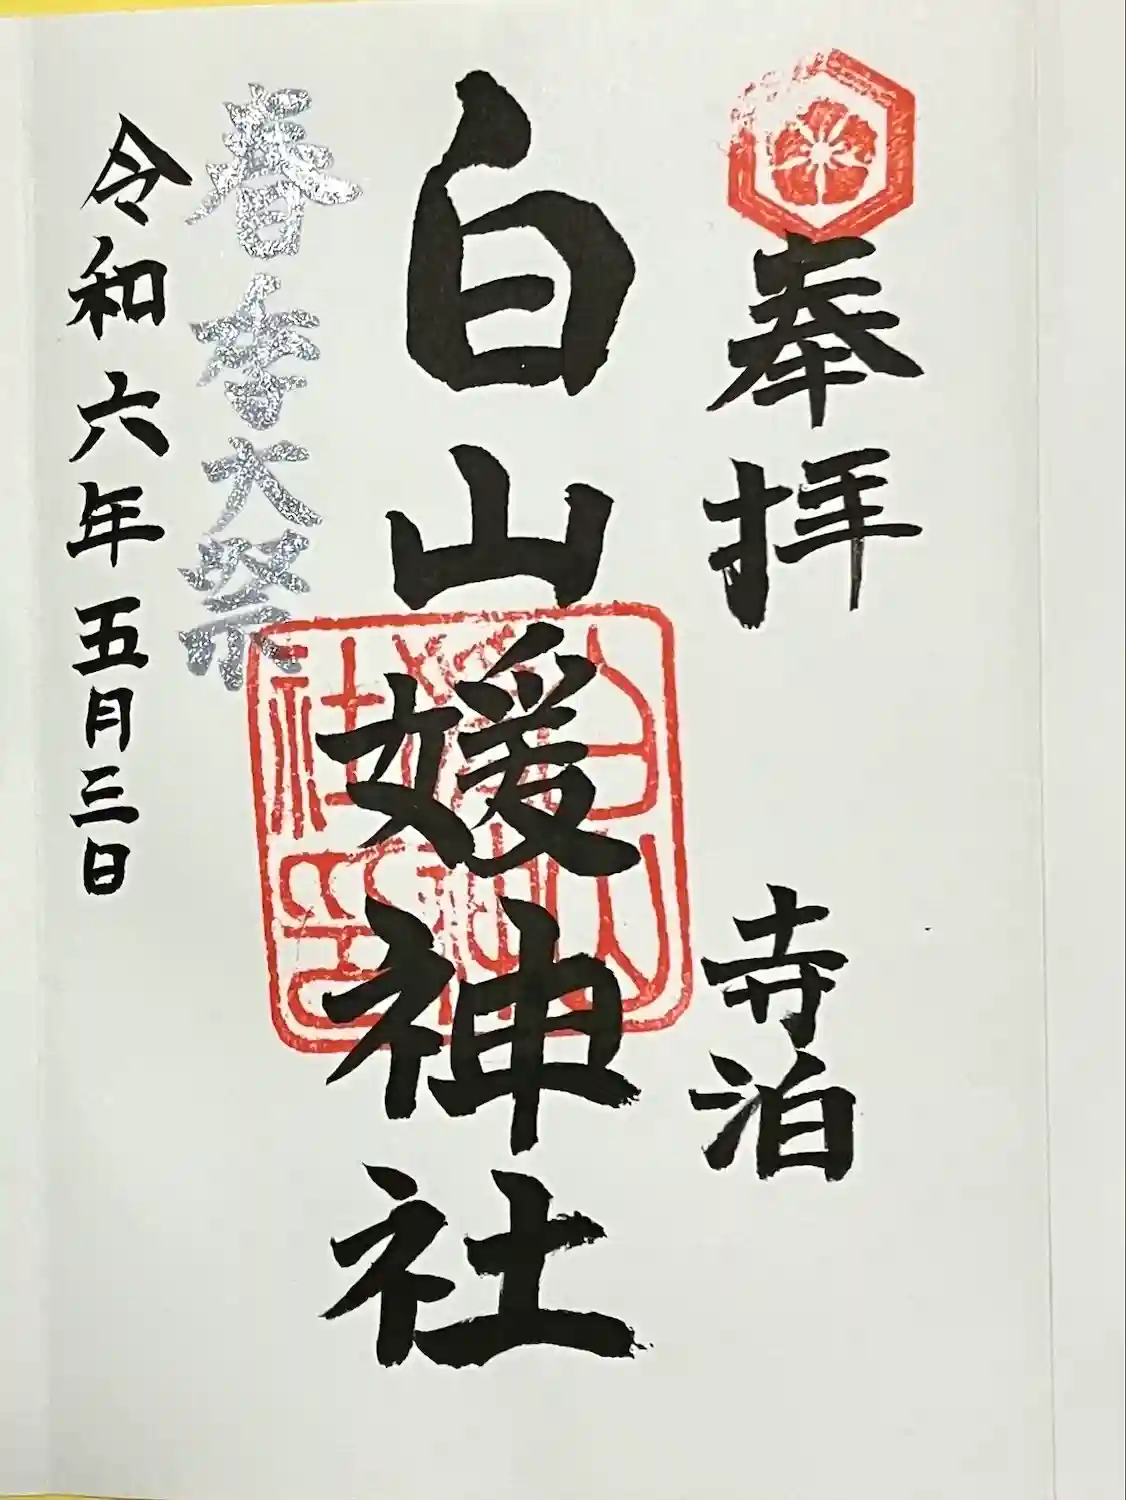 奉拝　寺泊
白山媛神社
春季大祭
令和六年五月三日